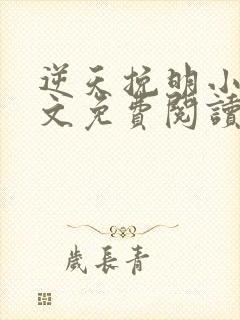 逆天挽明小
文免費閱讀
歲長青